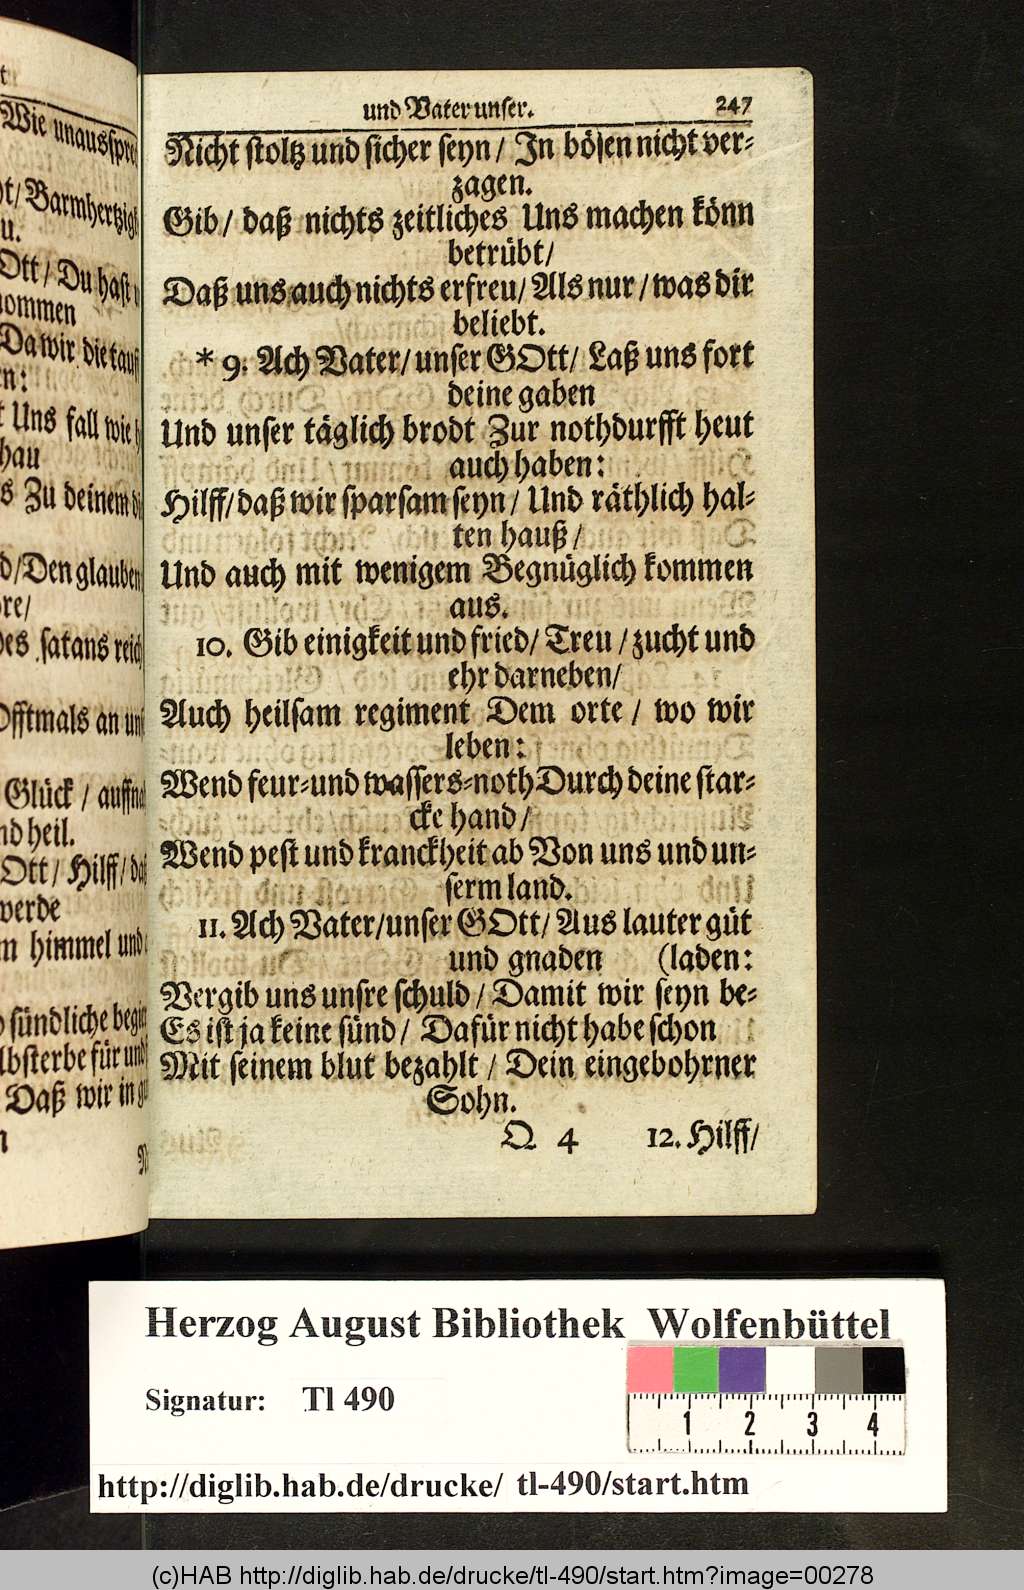 t
Wie
nt/Barmhertzig
u.
Ott/ Du hast
nommen
Da wir die tauff
en:
t Uns fall wie
hau
s Zu deinem
d/Den glauben
ore/
des satans reich
Offtmals an
Glück / auff
nd heil.
Ott/ Hilff/
werde
m himmel und
sündliche
lbsterbe für und
Daß wir in
n
und Vater unser. 247
Nicht stoltz und sicher seyn/ In bösen nicht ver-
zagen.
Gib/ daß nichts zeitliches Uns machen könn
betrübt/
Daß uns auch nichts erfreu/ Als nur/ was dir
beliebt.
* 9. Ach Vater/ unser GOtt/ Laß uns fort
deine gaben
Und unser täglich brodt Zur nothdurfft heut
auch haben:
Hilff/ daß wir sparsam seyn/ Und räthlich hal-
ten hauß/
Und auch mit wenigem Begnüglich kommen
aus.
10. Gib einigkeit und fried/ Treu/ zucht und
ehr darneben/
Auch heilsam regiment Dem orte/ wo wir
leben:
Wend feur-und wassers-noth Durch deine star-
cke hand/
Wend pest und kranckheit ab Von uns und un-
serm land.
11. Ach Vater/unser GOtt/ Aus lauter güt
und gnaden (laden:
Vergib uns unsre schuld/ Damit wir seyn be-
Es ist ja keine sünd/ Dafür nicht habe schon
Mit seinem blut bezahlt/ Dein eingebohrner
Sohn.
Q 4 12. Hilff/
Herzog August Bibliothek Wolfenbüttel
Signatur: Tl 490
1 2 3 4
http://diglib.hab.de/drucke/ tl-490/start.htm
(c)HAB http://diglib.hab.de/drucke/tl-490/start.htm?image=00278